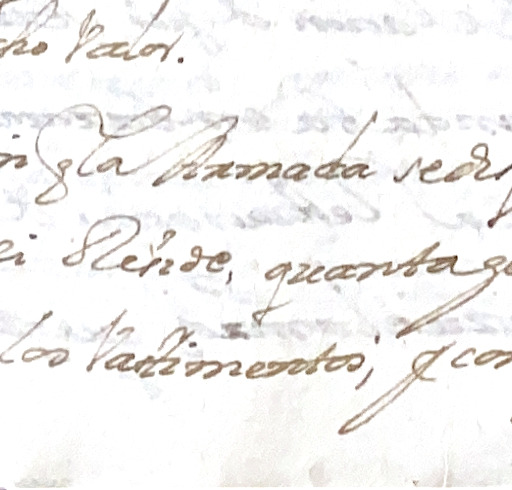 cho Valor.
in q la Armada se dis
ei Rende, quanta ge
los Vastimentos, q con